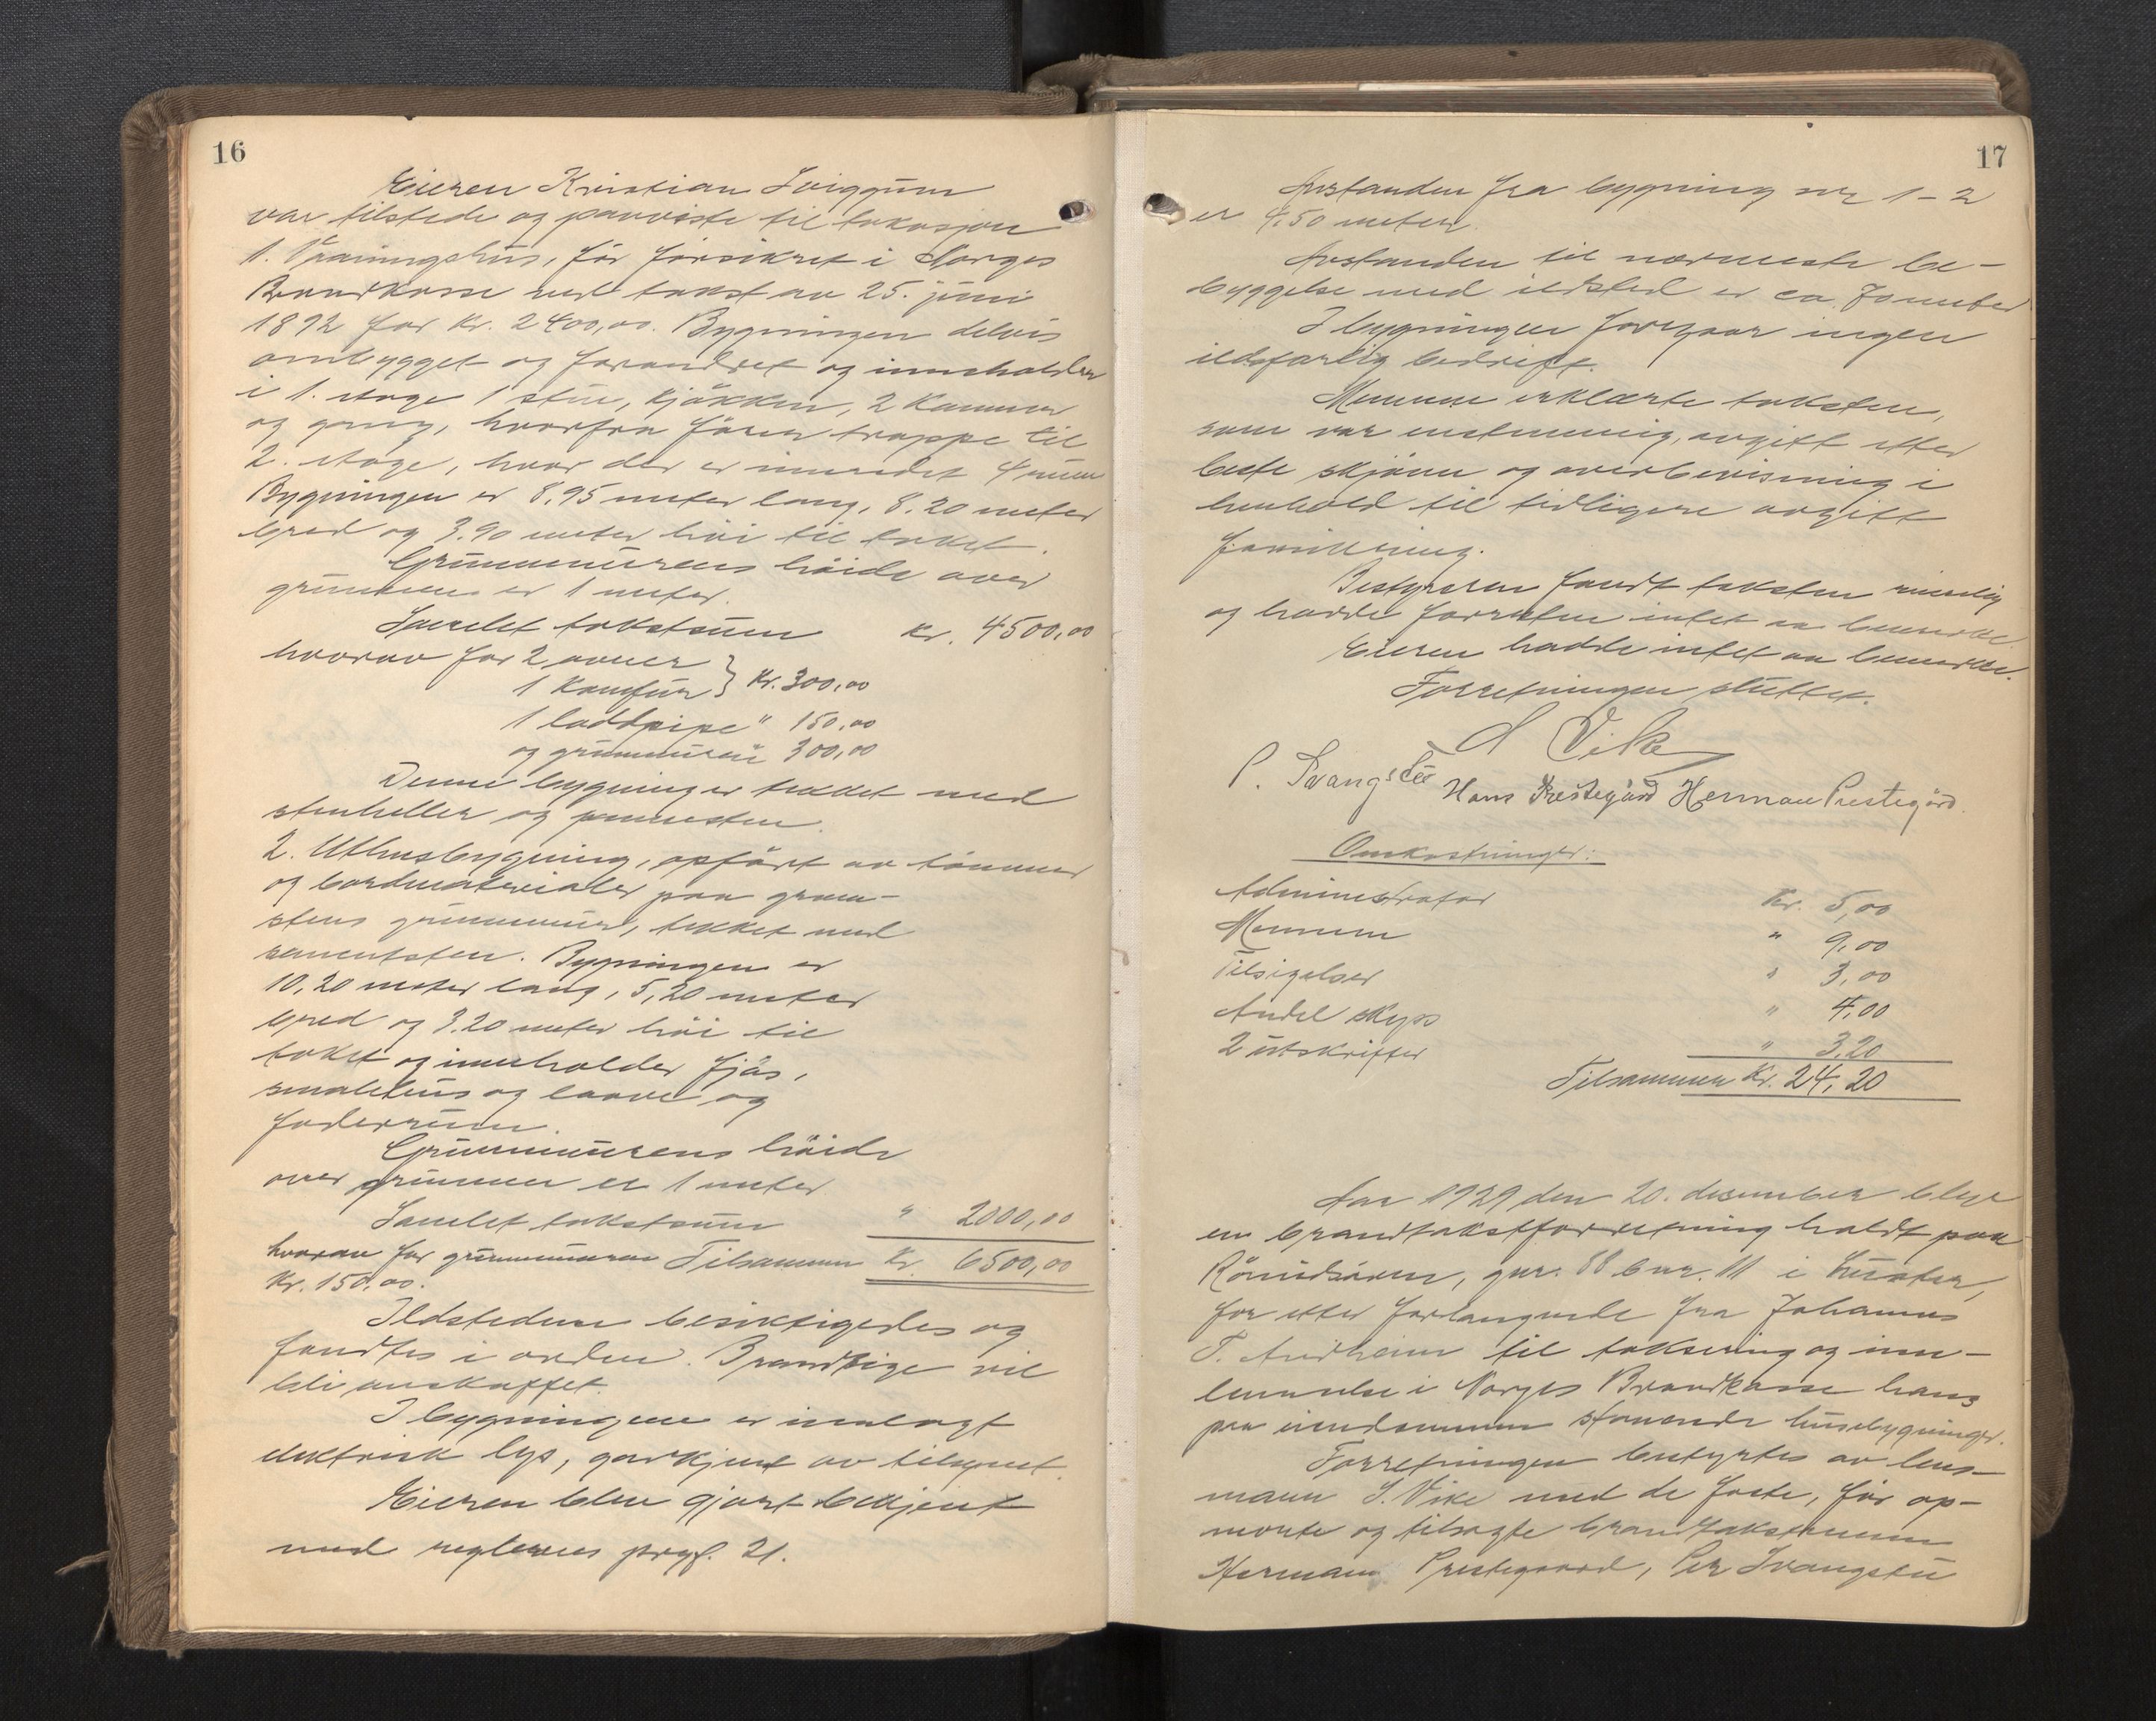 16
Eieren Kristian Sviggum
var tilstede og paaviste til taksasjon
1. Vaaningshus, för försikret i Norges
Brandkasse ved takst av 25. juni
1892 for kr. 2400,00. Bygningen delvis
ombygget og forandret og inneholder
i 1. etage 1 stue, kjökken, 2 kammer
og gang, hvorfra förer trappe til
2. etage, hvor der er innredet 4 rum
Bygningen er 8,95 meter lang, 8.20 meter
bred og 3.90 meter höi til taket.
Grunnmurens höide over
grunnen er 1 meter.
Samlet takstsum kr. 4500,00
hvorav for 2 ovner
1 komfur } kr. 300,00
1 loddpipe " 150,00
og grunnmuren " 300,00
Denne bygning er tekket med
stenheller og pannesten.
2. Uthusbygning, opfört av tömmer
og bordmaterialer paa graa-
stens grunnmur, tekket med
sementsten. Bygningen er
10,20 meter lang, 5,20 meter
bred og 3.20 meter höi til
taket og inneholder fjös,
smalehus og laave og
foderrum.
Grunnmurens höide
over grunnen er 1 meter
Samlet takstsum " 2000,00
hvorav for grunnmuren Tilsammen Kr. 6500,00
Kr. 150,00.
Ildstedene besiktigedes og
fandtes i orden. Brandstige vil
bli anskaffet.
I bygningene er innlagt
elektrisk lys, godkjent av tilsynet.
Eieren blev gjort bekjent
med reglenes prgf. 21.
17
Avstanden fra bygning nr 1-2
er 4,50 meter.
Avstanden til nærmeste be-
byggelse med ildsted er ca. 70 meter
I bygningen foregaar ingen
ildsfarlig bedrift.
Mennene erklærte taksten,
som var enstemmig, avgitt efter
beste skjönn og overbevisning i
henhold til tidligere avgitt
forsikring.
Bestyreren fandt taksten rimelig
og hadde forresten intet aa bemerke.
Eieren hadde intet aa bemerke.
Forretningen sluttet.
S Vike
P. Svangstu Hans Prestegård Herman Prestegård.
Omkostninger:
Administrator Kr. 5,00
Mennene " 9,00
Tilsigelser " 3,00
Andel skyss " 4,00
2 utskrifter " 3,20
Tilsammen Kr. 24,20
Aar 1929 den 20. desember blev
en brandtakstforretning holdt paa
gnr. 88 bnr. 11 i Luster,
for efter forlangende fra Johannes
T. til taksering og inn-
lemmelse i Norges Brandkasse hans
paa eiendommen staaende husebygninger.
Forretningen bestyrtes av lens-
mann S. Vike med de faste, för op-
nevnte og tilsagte brandtakstmenn
Hermann Prestegaard, Per Svangstu